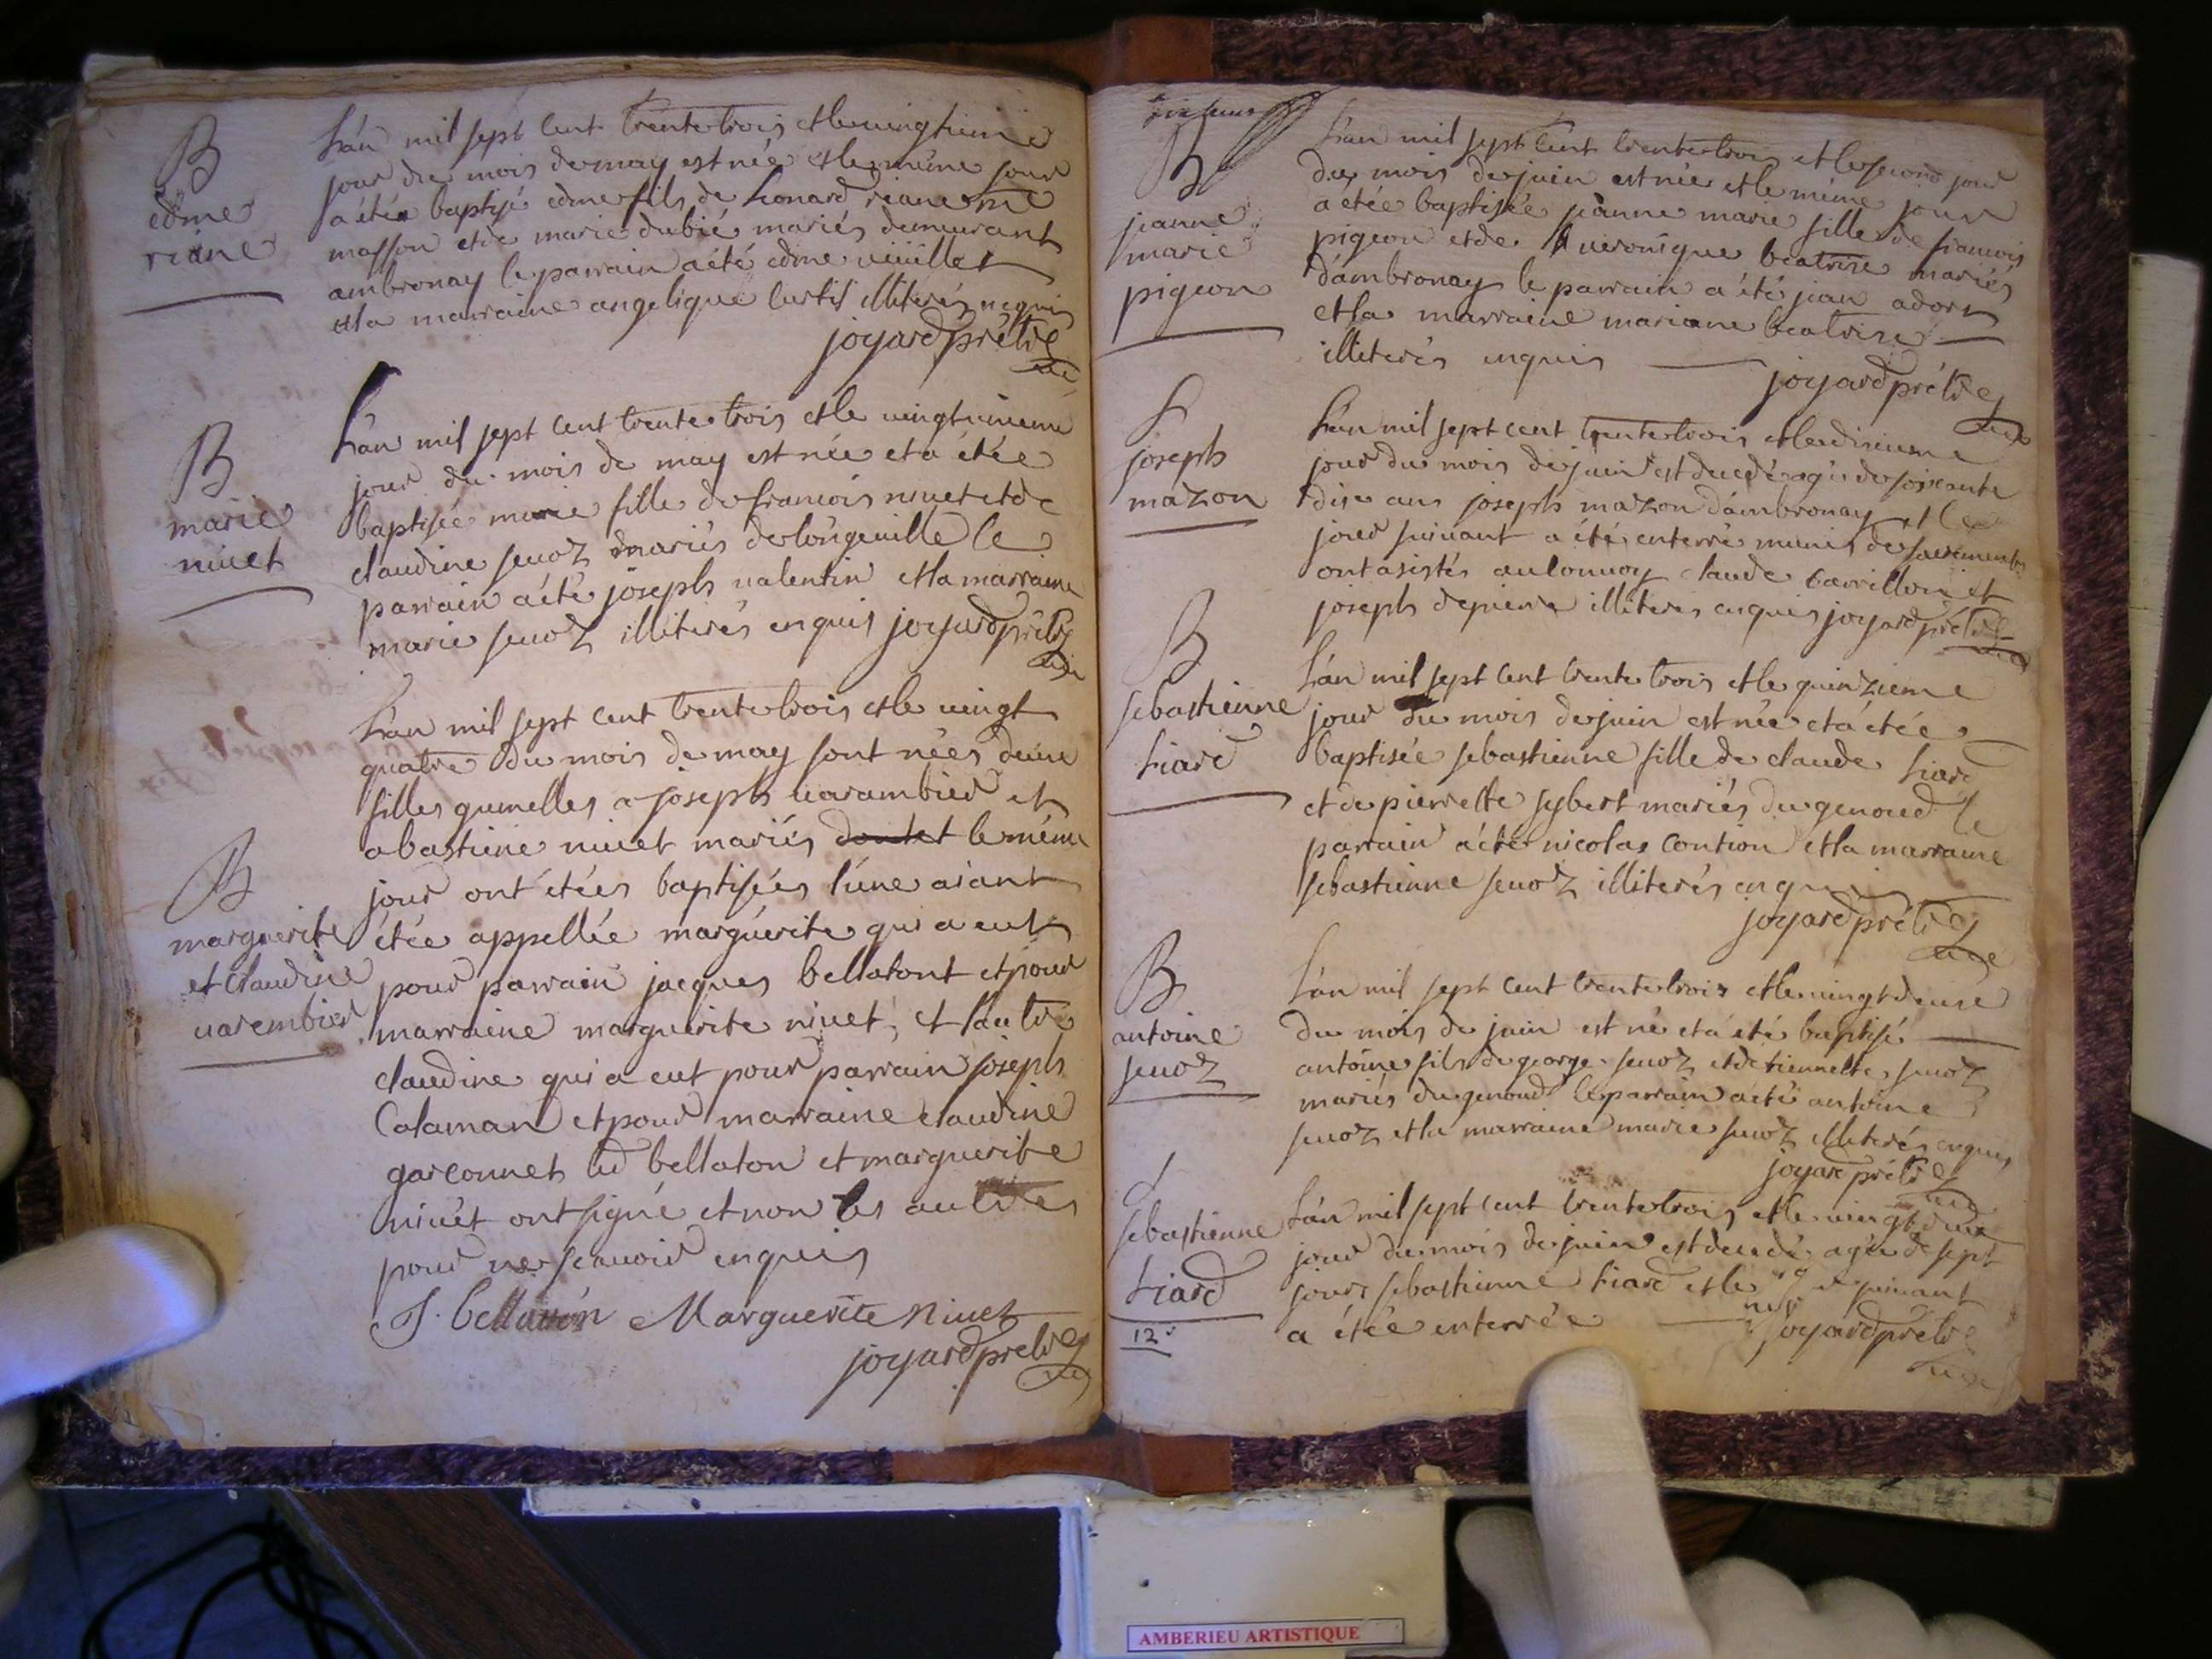 B
edme
riane
L'an mil sept cent trente trois et le vingtieme
jour du mois de may est née et le même jour
a été baptisé edme fils de Leonard riane me
masson et de marie dubié mariés demeurant
ambronay le parrain a été edme
et la marraine angelique curtil illiterés enquis
joyard prêtre
B
marie
nivet
L'an mil sept cent trente trois et le
jour du mois de may est née et a étée
baptisée marie fille de francois nivet et de
claudine sevoz mariés de longeville le
parrain a été joseph valentin et la marraine
marie sevoz illiterés enquis joyard prêtre
B
marguerite
et claudine
varembier
L'an mil sept cent trente trois et le vingt
quatre du mois de may sont nées deux
filles gumelles a joseph varambier et
a bastiene nivet mariés le même
jour ont étées baptisées l'une aiant
étée appellée marguérite qui a eut
pour parrain jacques bellatont et pour
marraine marguerite nivet, et l'autre
claudine qui a eut pour parrain joseph
Calaman et pour marraine claudine
garconnet led bellaton et marguerite
nivet ont signé et non les autres
pour ne scavoir enquis
J. bellaton Marguerite Nivet
joyard prêtre
B
jeanne
marie
pigeon
L'an mil sept cent trente trois et le second jour
du mois de juin est née et le même jour
a étée baptisée jeanne marie fille de francois
pigeon et de veronique beatrise mariés
d'ambronay le parrain a été jean adorn
et la marraine mariane beatrise
illiterés enquis
joyard prêtre
S
joseph
mazon
L'an mil sept cent trente trois et le dixieme
jour du mois de juin est decedé agé de soixante
dix ans joseph mazon d'ambronay et le
jour suivant a été enterré munis des sacrements
ont asistés au convoy claude carrillon et
joseph depierre illiteres enquis joyard prêtre
B
sebastienne
Liard
L'an mil sept cent trente trois et le quinzieme
jour du mois de juin est née et a étée
baptisée sebastienne fille de claude Liard
et de pierrette sybert mariés du genoud le
parrain a été nicolas contion et la marraine
sebastienne sevoz illiterés enquis
joyard prêtre
B
antoine
sevoz
L'an mil sept cent trente trois et le vingt deuxe
du mois de juin est né et a été baptisé
antoine fils de george sevoz et de tiennette sevoz
mariés du genoud le parrain a été antoine
sevoz et la marraine marie sevoz illiterés enquis
joyard prêtre
S
sebastienne
Liard
12e
L'an mil sept cent trente trois et le vingt deux
jour du mois de juin est decedé agée de sept
jours sebastienne Liard et le jour suivant
a étée enterrée
joyard prêtre
AMBERIEU ARTISTIQUE